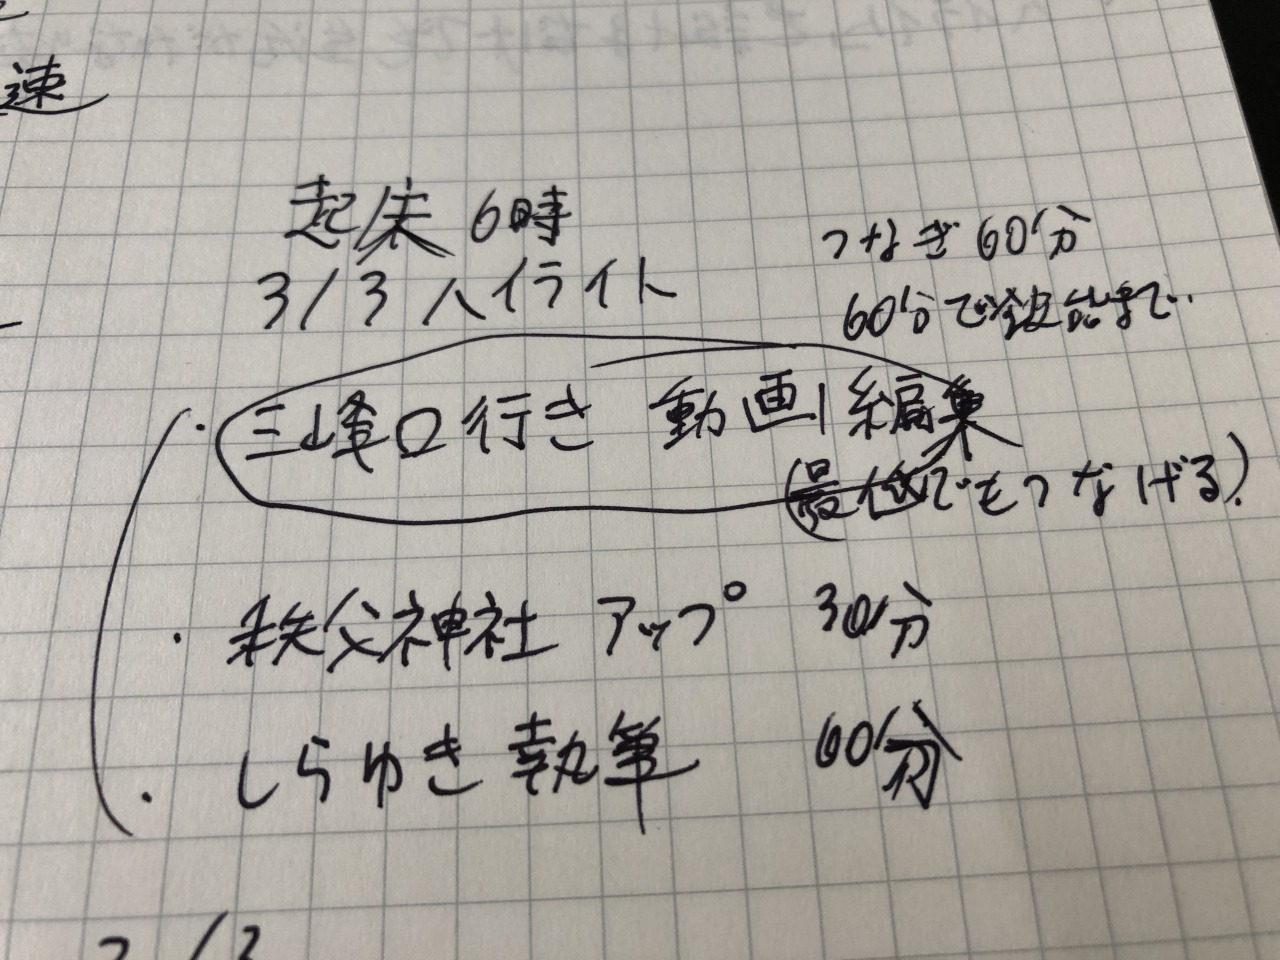 速
起床 6時
3/3 ハイライト
つなぎ 60分
60分で 飯能まで.
・三峰口行き 動画編集
(最低でもつなげる)
・秩父神社 アップ 30分
・しらゆき 執筆 60分